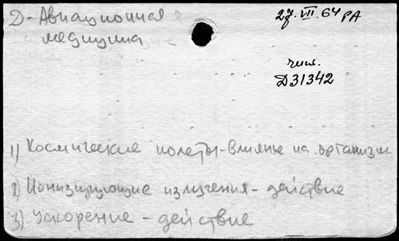 2 - Авиационная
медицина
27.VII.64 РА
чит.
Д31342
1) Космические полеты - влияние на организм
2) Ионизирующие излучения - действие
3) Ускорение - действие